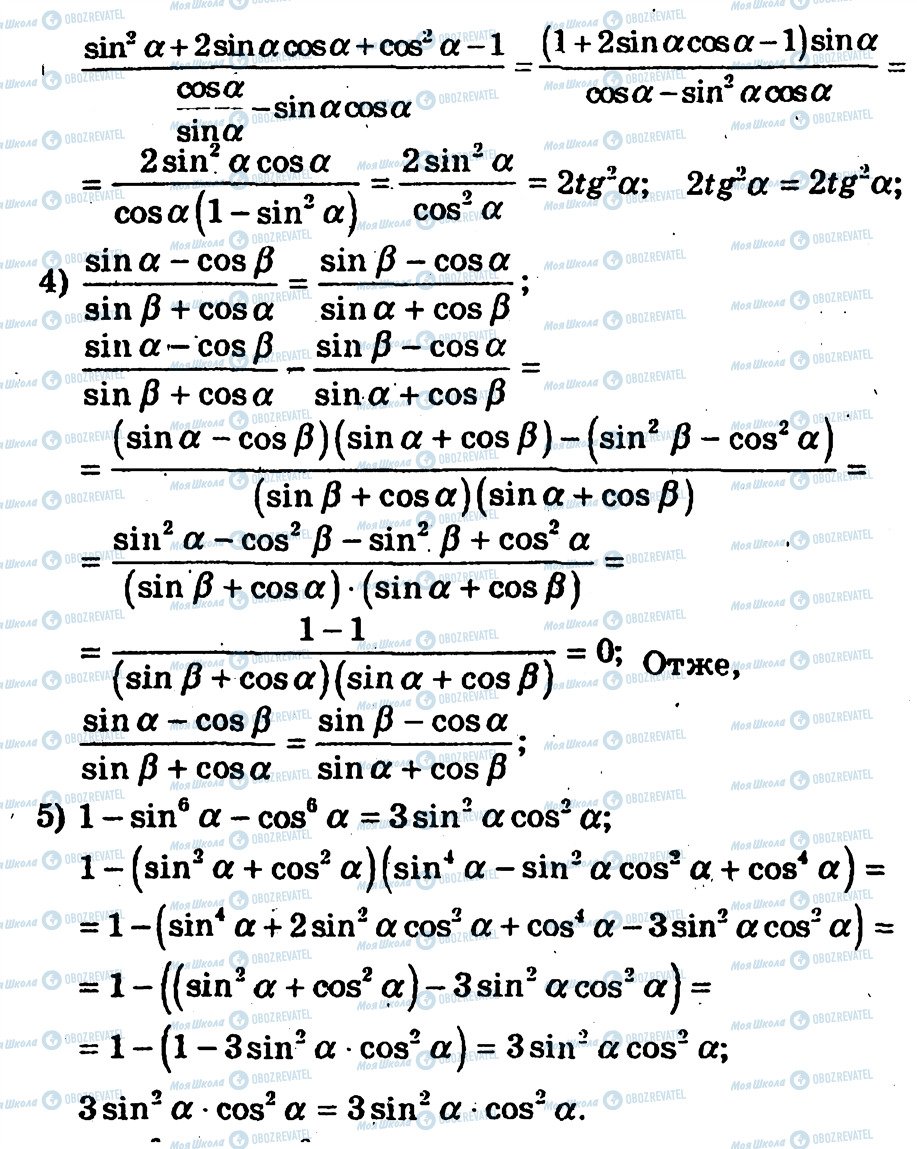 (sin² α + 2sin α cos α + cos² α − 1) / (cos α / sin α − sin α cos α) = ((1 + 2sin α cos α − 1) sin α) / (cos α − sin² α cos α) =
= (2 sin² α cos α) / (cos α (1 − sin² α)) = (2 sin² α) / (cos² α) = 2tg²α; 2tg²α = 2tg²α;
4) (sin α − cos β) / (sin β + cos α) = (sin β − cos α) / (sin α + cos β);
(sin α − cos β) / (sin β + cos α) − (sin β − cos α) / (sin α + cos β) =
= ((sin α − cos β)(sin α + cos β) − (sin² β − cos² α)) / ((sin β + cos α)(sin α + cos β)) =
= (sin² α − cos² β − sin² β + cos² α) / ((sin β + cos α) · (sin α + cos β)) =
= (1 − 1) / ((sin β + cos α)(sin α + cos β)) = 0; Отже,
(sin α − cos β) / (sin β + cos α) = (sin β − cos α) / (sin α + cos β);
5) 1 − sin⁶ α − cos⁶ α = 3 sin² α cos² α;
1 − (sin² α + cos² α)(sin⁴ α − sin² α cos² α + cos⁴ α) =
= 1 − (sin⁴ α + 2 sin² α cos² α + cos⁴ α − 3 sin² α cos² α) =
= 1 − ((sin² α + cos² α) − 3 sin² α cos² α) =
= 1 − (1 − 3 sin² α · cos² α) = 3 sin² α cos² α;
3 sin² α · cos² α = 3 sin² α · cos² α.
Моя Школа OBOZREVATEL